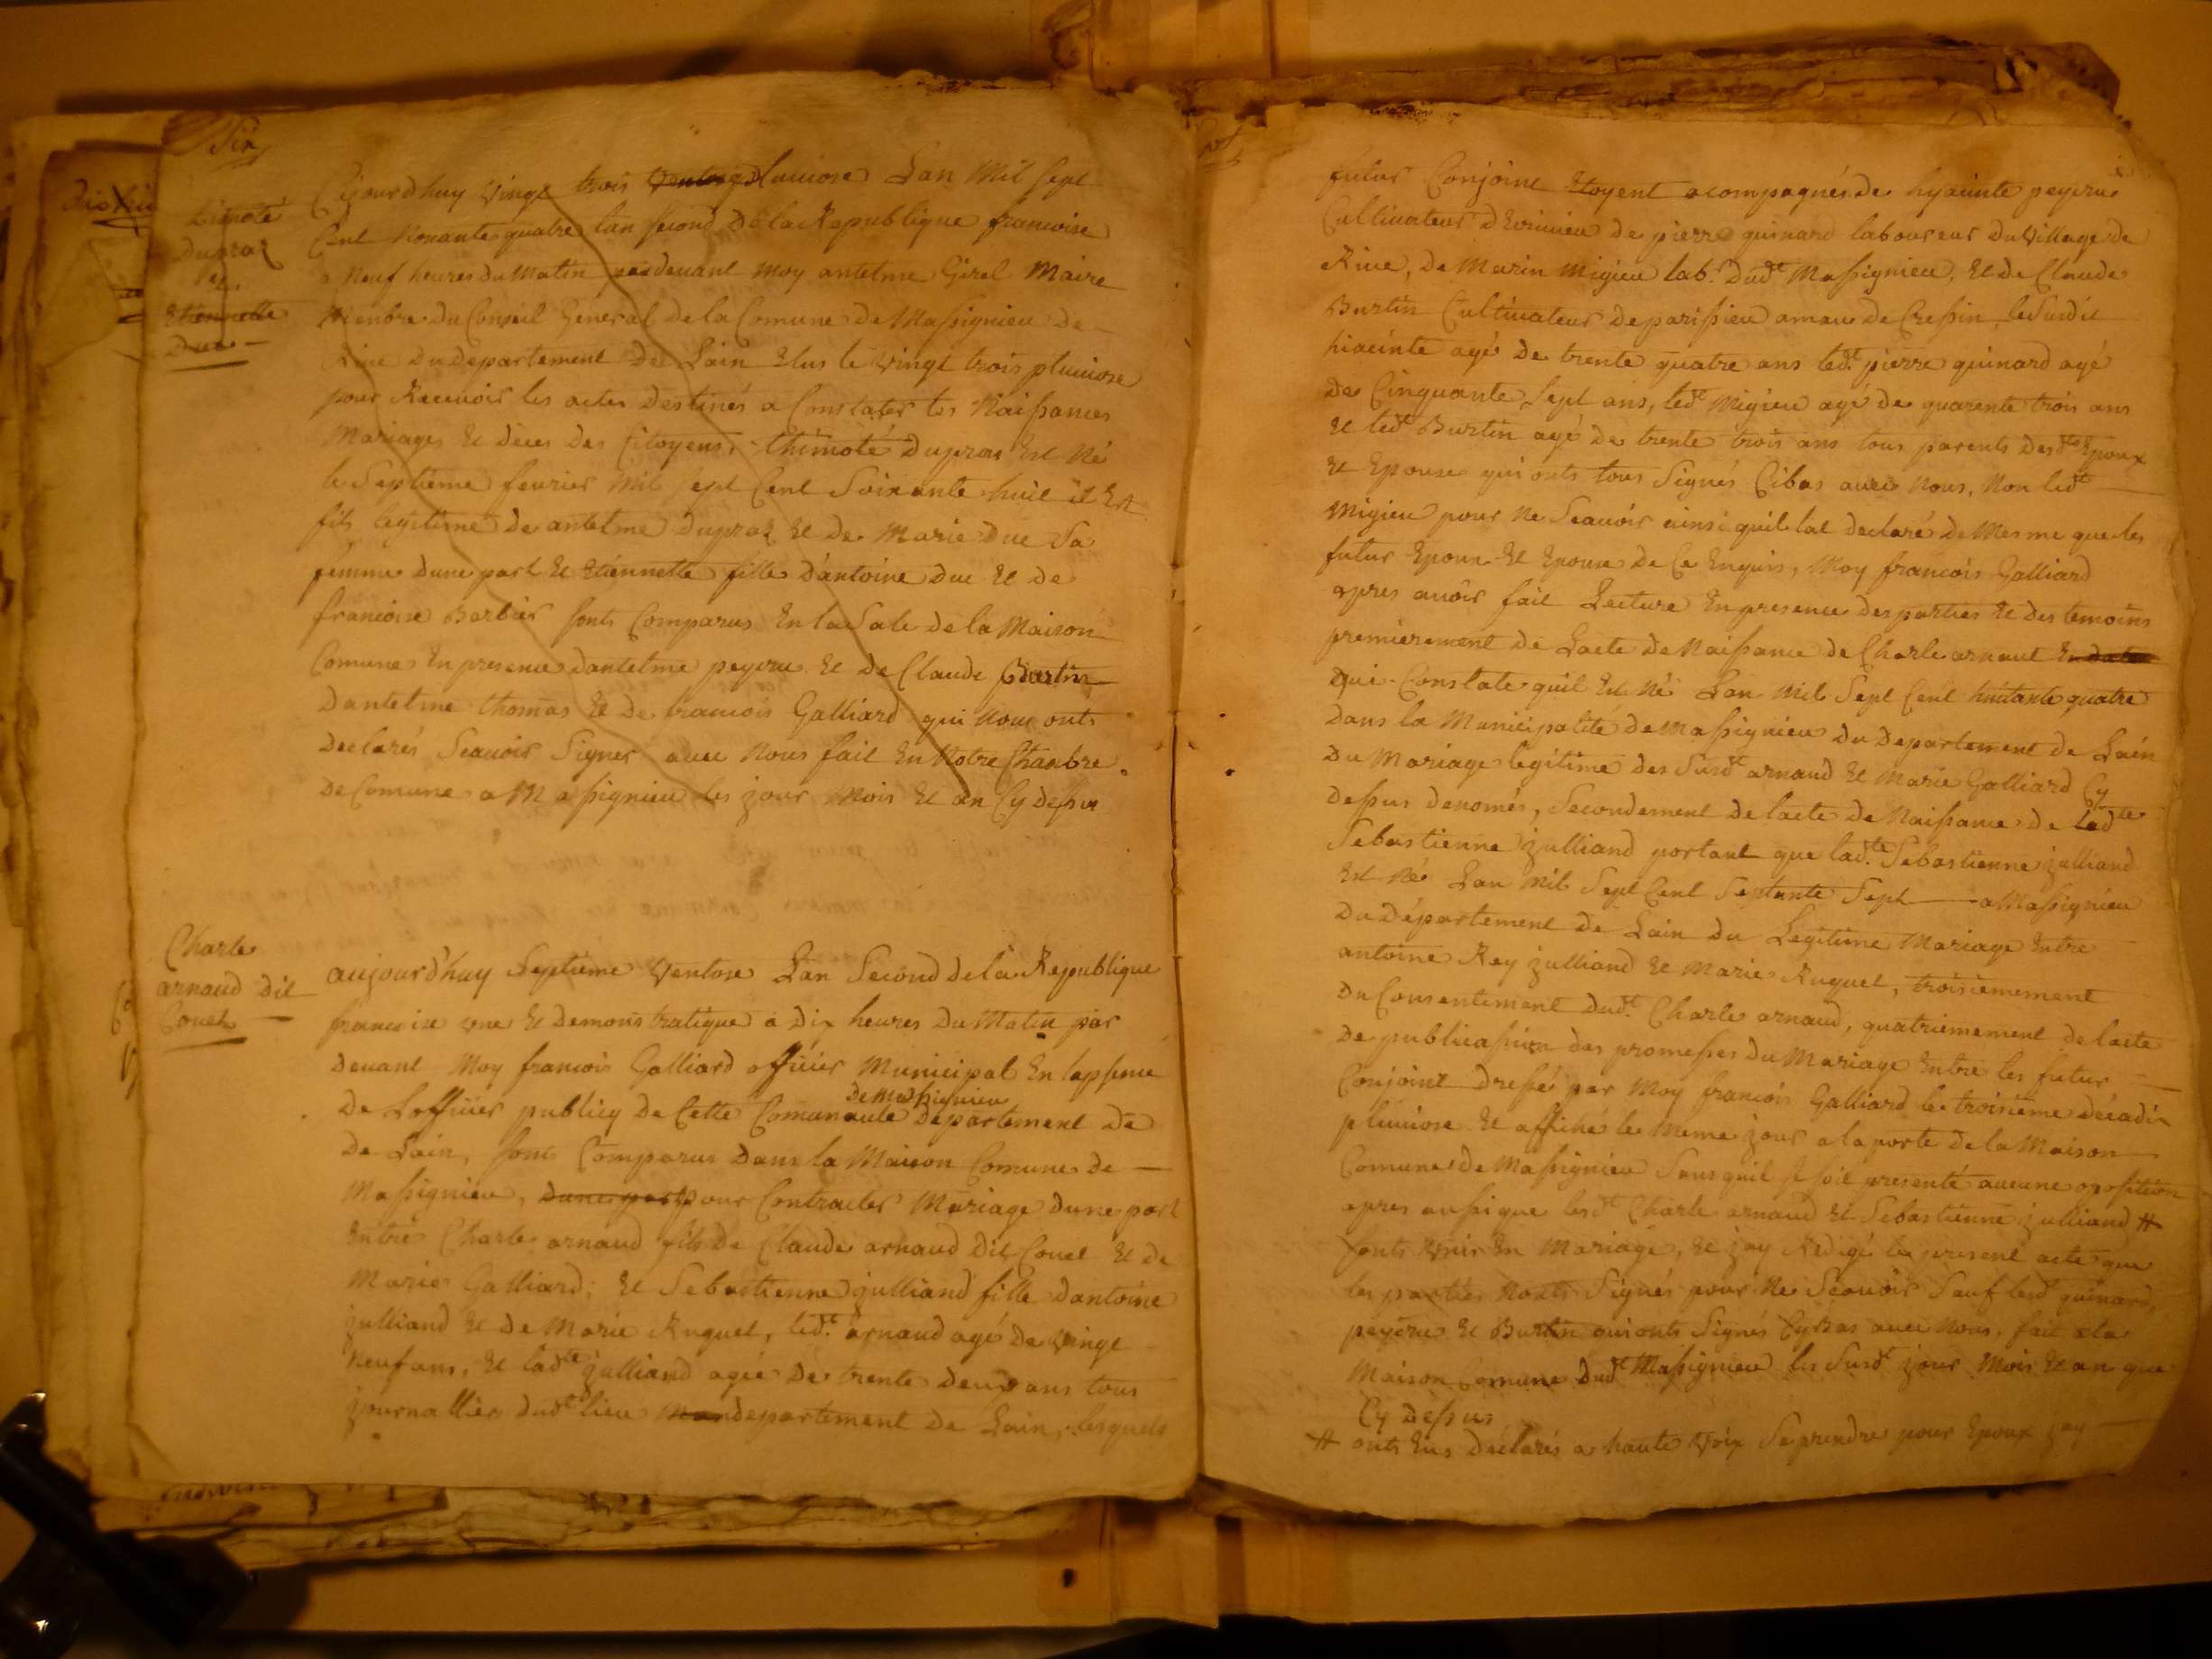 Six
Timoté
Dupraz
et
Etiennette
Duc
Cejourdhuy vingt trois ventose pluviose Lan Mil Sept
Cent Nonante quatre lan second De la Republique francoise
a Neuf heures du Matin pardevant Moy antelme Girel Maire
Menbre du Conseil General de la Comune de Massignieu de
Rive du departement de Lain Elus le vingt trois pluviose
pour Recevoir les actes Destinés a Constater les Naissances
Mariages et deces des Citoyens, thimoté Dupras Est Né
le Septieme fevrier Mil Sept Cent Soixante huit il Est
fils legitime de antelme Dupraz et de Marie Duc Sa
femme dune part et Etiennette fille d'antoine Duc et de
francoise Barbier sonts Comparus En la Sale de la Maison
Comune En presence dantelme peycru et de Claude Burtin
Dantelme thomas et de francois Galliard qui Nous onts
declarés Scavoir Signer avec Nous fait En Notre Chambre
De Comune a Massignieu les jour Mois et an Cy dessu
Charle
arnaud dit
Couet
aujourd'huy Septieme ventose Lan Second de la Republique
francoise une et Demonstratique a Dix heures Du Matin par
devant Moy francois Galliard officier Municipal En lapsence
De Lofficier publicq de Cette Comunauté de Massignieu departement De
De Lain, sonts Comparus Dans la Maison Comune de
Massignieu, dune part pour Contracter Mariage dune part
Entre Charle arnaud fils de Claude arnaud Dit Couet et de
Marie Galliard; et Sebastienne julliand fille dantoine
julliand et de Marie Ruguet, led.t arnaud agé de vingt
Neuf ans, et lad.te julliand agée de trente deux ans tous
journallier dud.t lieu departement de Lain, lesquels
futur Conjoint Etoyent acompagnés de hyacinte peycru
Cultivateur d'Evirieu de pierre guinard laboureur du village de
Rive, de Marin Migieu lab.r dud.t Massignieu, et de Claude
Burtin Cultivateur de parissieu amau de Cressin, le Susdit
hiacinte agé de trente quatre ans led.t pierre guinard agé
de Cinquante Sept ans, led.t Migieu agé de quarente trois ans
et led.t Burtin agé de trente trois ans tous parents desd.ts Epoux
et Epouse qui onts tous Signés Cibas avec Nous, Non led.t
Migieu pour Ne Scavoir ainsi quil lat declaré de Mesme que les
futur Epoux et Epouse de Ce Enquis, Moy francois Galliard
apres avoir fait Lecture En presence des parties et des temoins
premierement de Lacte de Naissance de Charle arnaut En date
qui Constate quil Est Né Lan Mil Sept Cent huitante quatre
dans la Municipalité de Massignieu du Departement de Lain
du Mariage legitime des Susd.t arnaud et Marie Galliard Cy
dessus denomés, Secondement de lacte de Naissance de lad.te
Sebastienne julliand portant que lad.te Sebastienne julliand
Est Né Lan Mil Sept Cent Septante Sept a Massignieu
du Département de Lain du Legitime Mariage Entre
antoine Rey julliand et Marie Ruguet, troisiemement
du Consentement dud.t Charle arnaud, quatriemement de lacte
de publication des promesses du Mariage Entre les futur
Conjoint dressé par Moy francois Galliard le troisieme décadi
pluviose et affiché le Meme jour a la porte de la Maison
Comune de Massignieu Sans quil se soit presenté aucune oposition
apres aussi que lesd.t Charle arnaud et Sebastienne julliand #
sonts Unis En Mariage, et jay Redigé le present acte que
les parties Nonts Signés pour Ne Scavoir Sauf lesd.t guinard,
peycru et Burtin qui onts Signés Cy bas avec Nous, fait a la
Maison Comune dud.t Massignieu les Susd.t jour Mois et an que
Cy Dessus
# onts Eus declarés a haute voix Se prendre pour Epoux jay